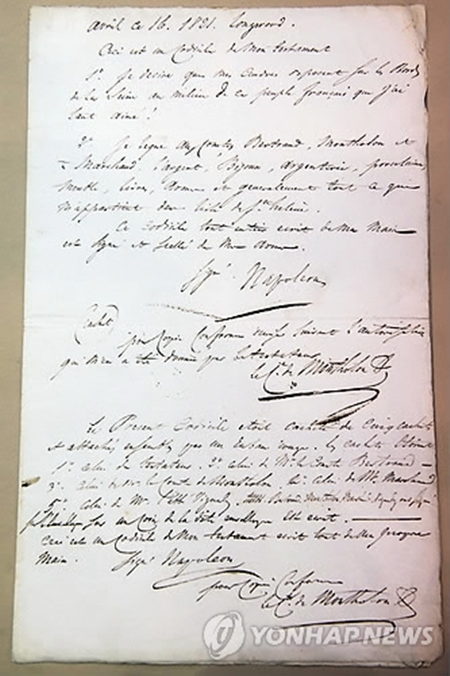 Avril ce 16. 1821. Longwood.
Ceci est un Codicile de Mon testament
1°. Je desire que mes Cendres reposent sur les Bords
de la Seine au milieu de ce peuple français que j'ai
tant aimé!
2°. Je legue aux Comtes Bertrand, Montholon et
Marchand l'argent, Bijoux, argenterie, porcelaine,
Meuble, Livres, Armes et generalement tout ce qui
m'appartient dans l'isle de Ste. helene.
Ce Codicile tout entier ecrit de Ma Main
est signé et scellé de Mes Armes.
Signé. Napoleon
Cachet
pour Copie Conforme
qui m'en a été donné par le testateur
le Cte. de Montholon
Le Present Codicile etait cacheté de Cinq cachets
et attachés ensemble par un ruban rouge, les cachets
1°. celui du testateur. 2°. celui de Mr. le Comte Bertrand
3°. celui de Mr. le Comte de Montholon celui de Mr. Marchand
celui de Mr. l'abbé Vignali
sur un coin de la est ecrit.
Ceci est un Codicile de Mon testament ecrit tout de Ma propre
Main. Signé Napoleon
pour Copie Conforme
le Ct. de Montholon
YONHAPNEWS